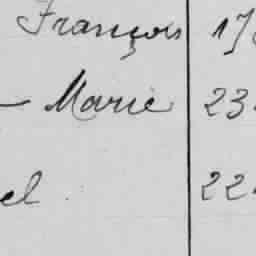 François 17
– Marie 23
el. 22